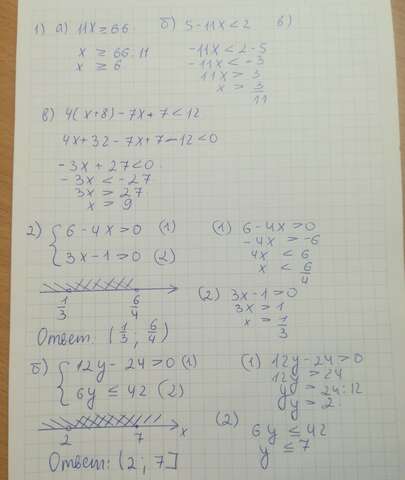 1) а) 11x ≥ 66 б) 5 - 11x < 2 в)
x ≥ 66 : 11
x ≥ 6
-11x < 2 - 5
-11x < -3
11x > 3
x > 3/11
в) 4(x+8) - 7x + 7 < 12
4x + 32 - 7x + 7 - 12 < 0
-3x + 27 < 0
-3x < -27
3x > 27
x > 9
2) { 6 - 4x > 0 (1)
3x - 1 > 0 (2)
(1) 6 - 4x > 0
-4x > -6
4x < 6
x < 6/4
1/3 6/4
(2) 3x - 1 > 0
3x > 1
x = 1/3
Ответ: (1/3; 6/4)
б) { 12y - 24 > 0 (1)
6y ≤ 42 (2)
(1) 12y - 24 > 0
12y > 24
y > 24 : 12
y = 2
2 7 x
(2)
6y ≤ 42
y ≤ 7
Ответ: (2; 7]